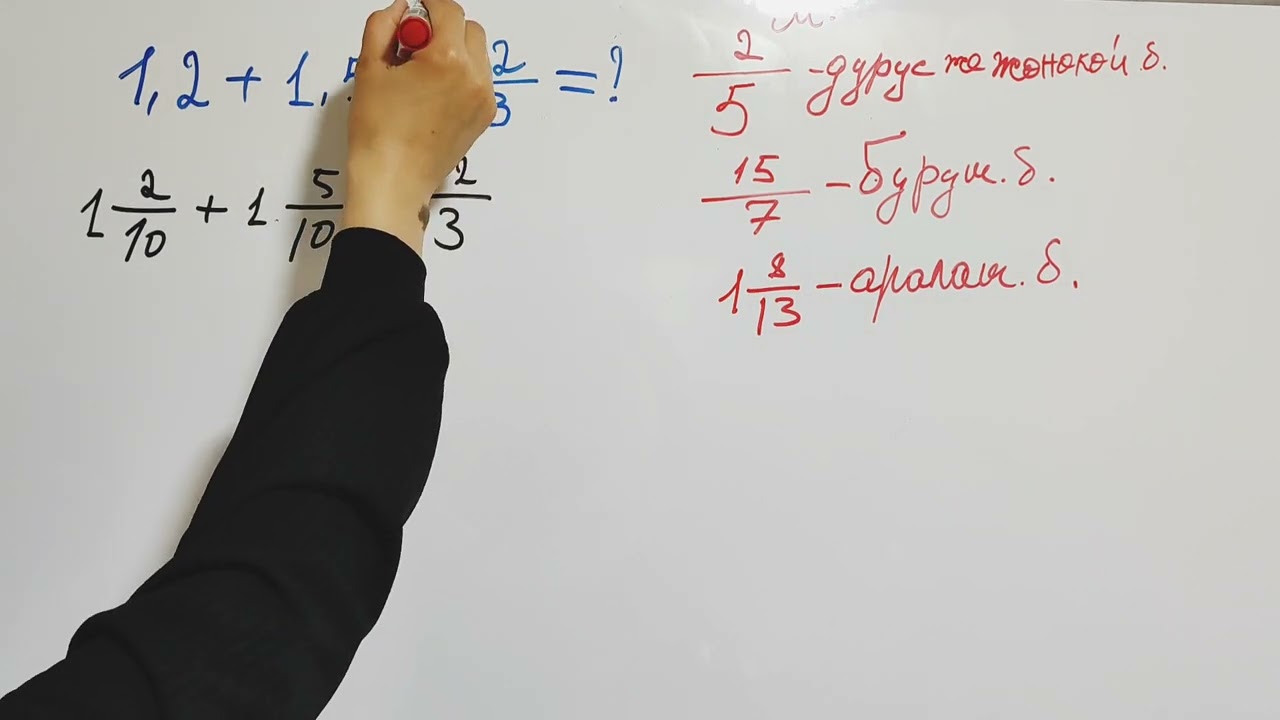 1,2 + 1, 2/3 = ?
1 2/10 + 1 5/10 2/3
м.
2/5 - дурус же жөнөкөй б.
15/7 - буруш. б.
1 8/13 - аралаш. б.